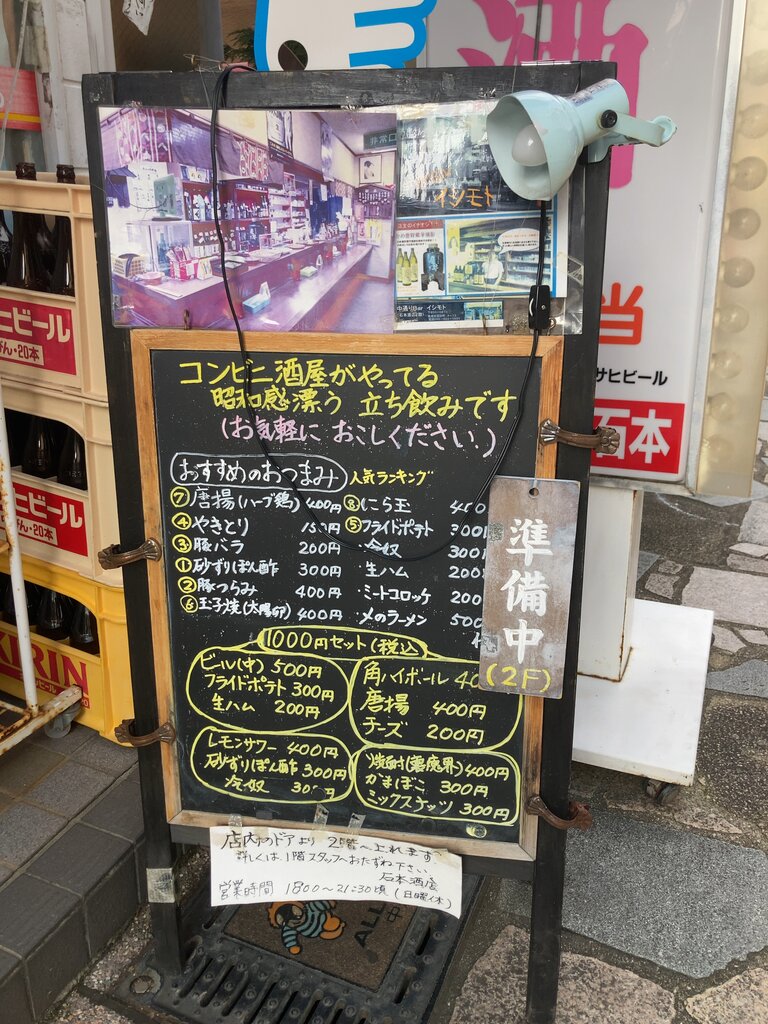 酒
非常口
イチモト
中通りBar イシモト
コンビニ酒屋がやってる
昭和感漂う 立ち飲みです
(お気軽に おこしください.)
おすすめのおつまみ 人気ランキング
⑦唐揚(ハーブ鶏) 400円
④やきとり 150円
③豚バラ 200円
①砂ずりぽん酢 300円
②豚つらみ 400円
⑥玉子焼(大陽卵) 400円
⑧にら玉 400
⑤フライドポテト 300
冷奴 300
生ハム 200
・ミートコロッケ 200
〆のラーメン 500
準備中
(2F)
1000円セット(税込
ビール(中) 500円
フライドポテト 300円
生ハム 200円
角ハイボール 40
唐揚 400円
チーズ 200円
レモンサワー 400円
砂ずりぽん酢 300円
冷奴 300円
焼酎(閻魔界) 400円
かまぼこ 300円
ミックスナッツ 300円
店内のドアより 2階へ上れます
詳しくは 1階スタッフへおたずね下さい
石本酒店
営業時間 18:00~21:30頃 (日曜休)
ヒビール
びん・20本
ヒビール
ん・20本
KIRIN
当
サヒビール
石本
ALL